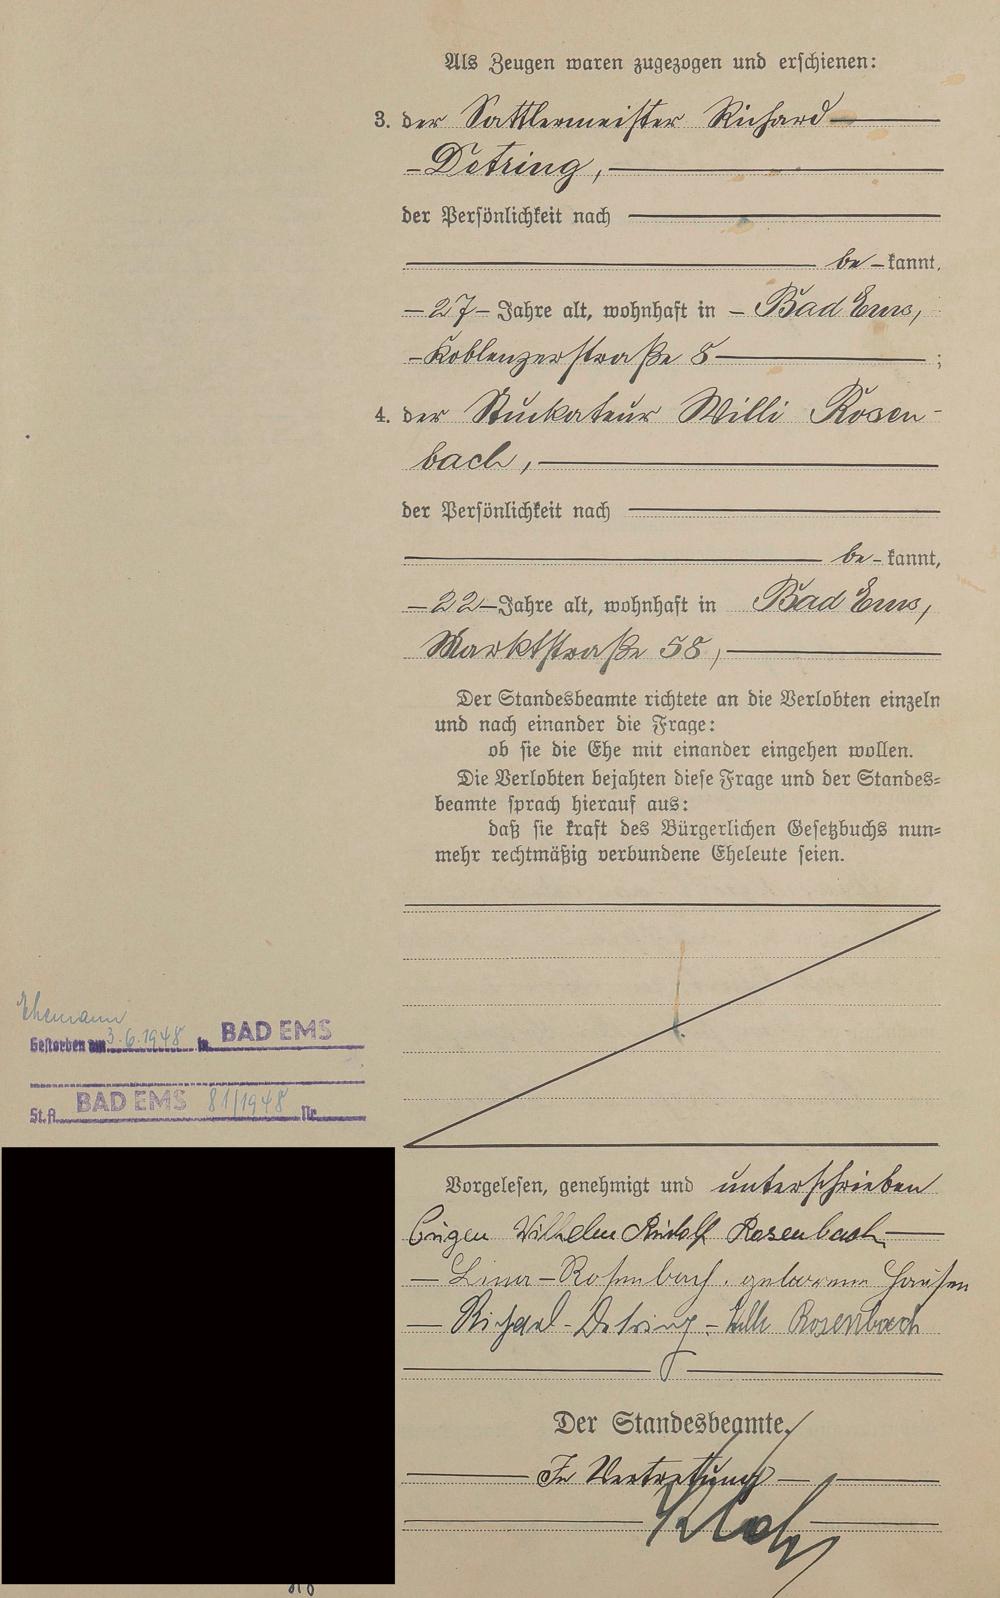 Als Zeugen waren zugezogen und erschienen:
3. der Sattlermeister Richard
Detring,
der Persönlichkeit nach
be-kannt,
-27- Jahre alt, wohnhaft in - Bad Ems,
-Koblenzerstraße 5 ;
4. der Stuckateur Willi Rosen-
bach,
der Persönlichkeit nach
be-kannt,
-22- Jahre alt, wohnhaft in Bad Ems,
Marktstraße 58,
Der Standesbeamte richtete an die Verlobten einzeln
und nach einander die Frage:
ob sie die Ehe mit einander eingehen wollen.
Die Verlobten bejahten diese Frage und der Standes-
beamte sprach hierauf aus:
daß sie kraft des Bürgerlichen Gesetzbuchs nun-
mehr rechtmäßig verbundene Eheleute seien.
Ehemann
Gestorben am 3.6.1948 in BAD EMS
St.A. BAD EMS 81/1948 Nr.
Vorgelesen, genehmigt und unterschrieben
Eugen Wilhelm Rudolf Rosenbach
- Lina - Rosenbach, geborene Hansen
- Richard - Detring - Willi Rosenbach
Der Standesbeamte.
In Vertretung